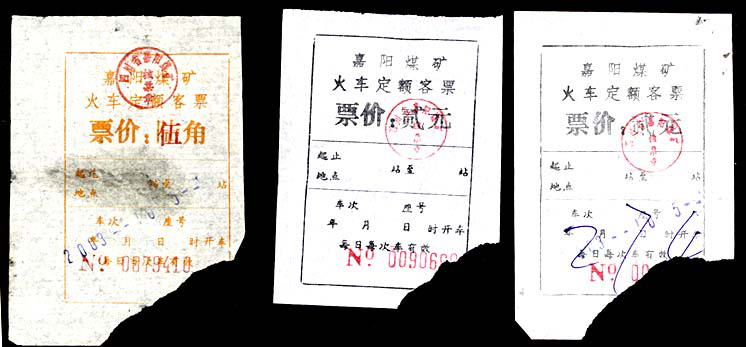 嘉阳煤矿
火车定额客票
票价：伍角
起止
地点 站至 站
车次 座号
年 月 日 时开车
每日每次车有效
No 0079410
嘉阳煤矿
火车定额客票
票价：贰元
起止
地点 站至 站
车次 座号
年 月 日 时开车
每日每次车有效
No 00906
嘉阳煤矿
火车定额客票
票价：贰元
起止
地点 站至 站
车次 座号
年 月 日 时开车
每日每次车有效
No 00